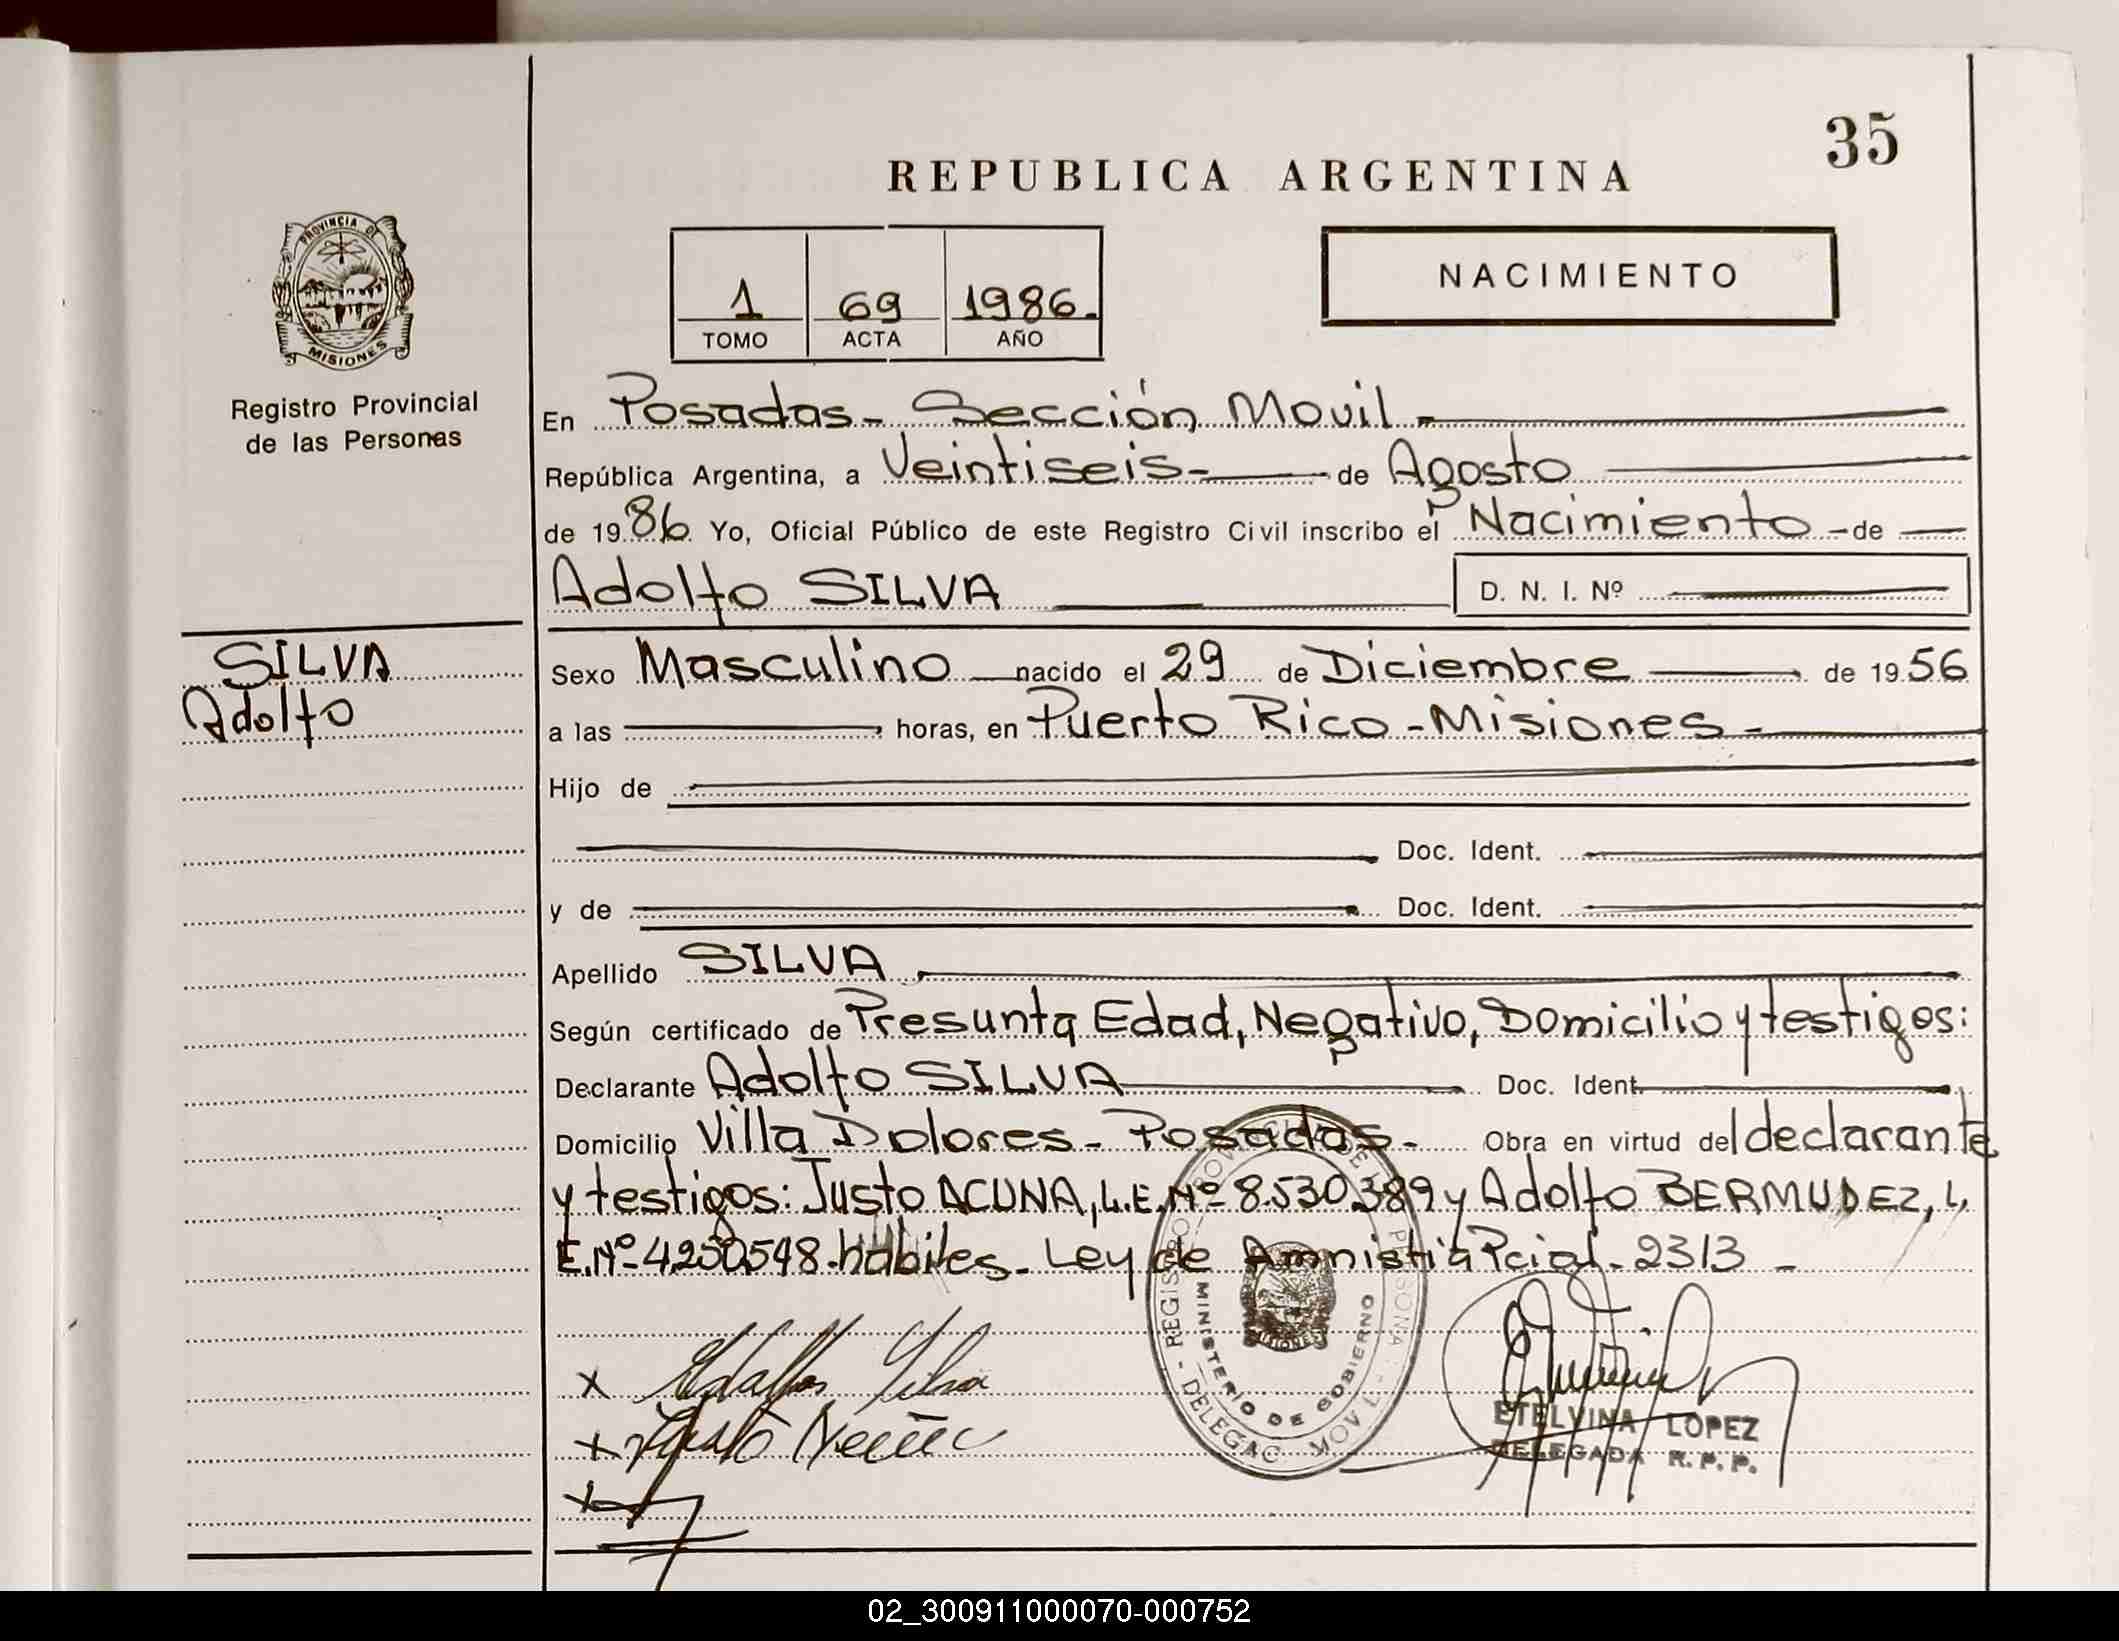 35
REPUBLICA ARGENTINA
PROVINCIA DE
MISIONES
Registro Provincial
de las Personas
1 69 1986.
TOMO ACTA AÑO
NACIMIENTO
En Posadas - Sección Movil
República Argentina, a Veintiseis de Agosto
de 1986 Yo, Oficial Público de este Registro Civil inscribo el Nacimiento - de
Adolfo SILVA D. N. I. Nº
SILVA
Adolfo
Sexo Masculino nacido el 29 de Diciembre de 1956
a las horas, en Puerto Rico - Misiones -
Hijo de
Doc. Ident.
y de Doc. Ident.
Apellido SILVA
Según certificado de Presunta Edad, Negativo, Domicilio y testigos:
Declarante Adolfo SILVA Doc. Ident.
Domicilio Villa Dolores - Posadas - Obra en virtud del declarante
y testigos: Justo ACUNA, L.E. Nº 8.530.389 y Adolfo BERMUDEZ, L.
E. Nº 4.250.548 - habiles - Ley de Amnistia Pcial - 2313 -
MINISTERIO DE GOBIERNO
x Adolfo Silva
x Justo
x
ETELVINA LOPEZ
DELEGADA R. P. P.
02_300911000070-000752